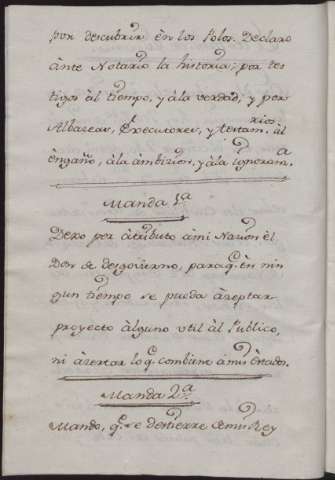 por descubrir èn los Polos. Declaro
ànte Notario la historia; por tes
tigos àl tiempo, y à la verdad, y por
Albaceas, Èxecutores, y testam.rios àl
èngaño, à la àmbicion, y à la ignoran.a
Manda 1.a
Dexo por àtributo à mi Nacion èl
Don de desgovierno, para q.e èn nin
gun tiempo se pueda àceptar
proyecto àlguno util àl Publico,
ni àcertar lo q.e combiene à mis Èstados.
Manda 2.a
Mando, q.e se destierre de mi Rey